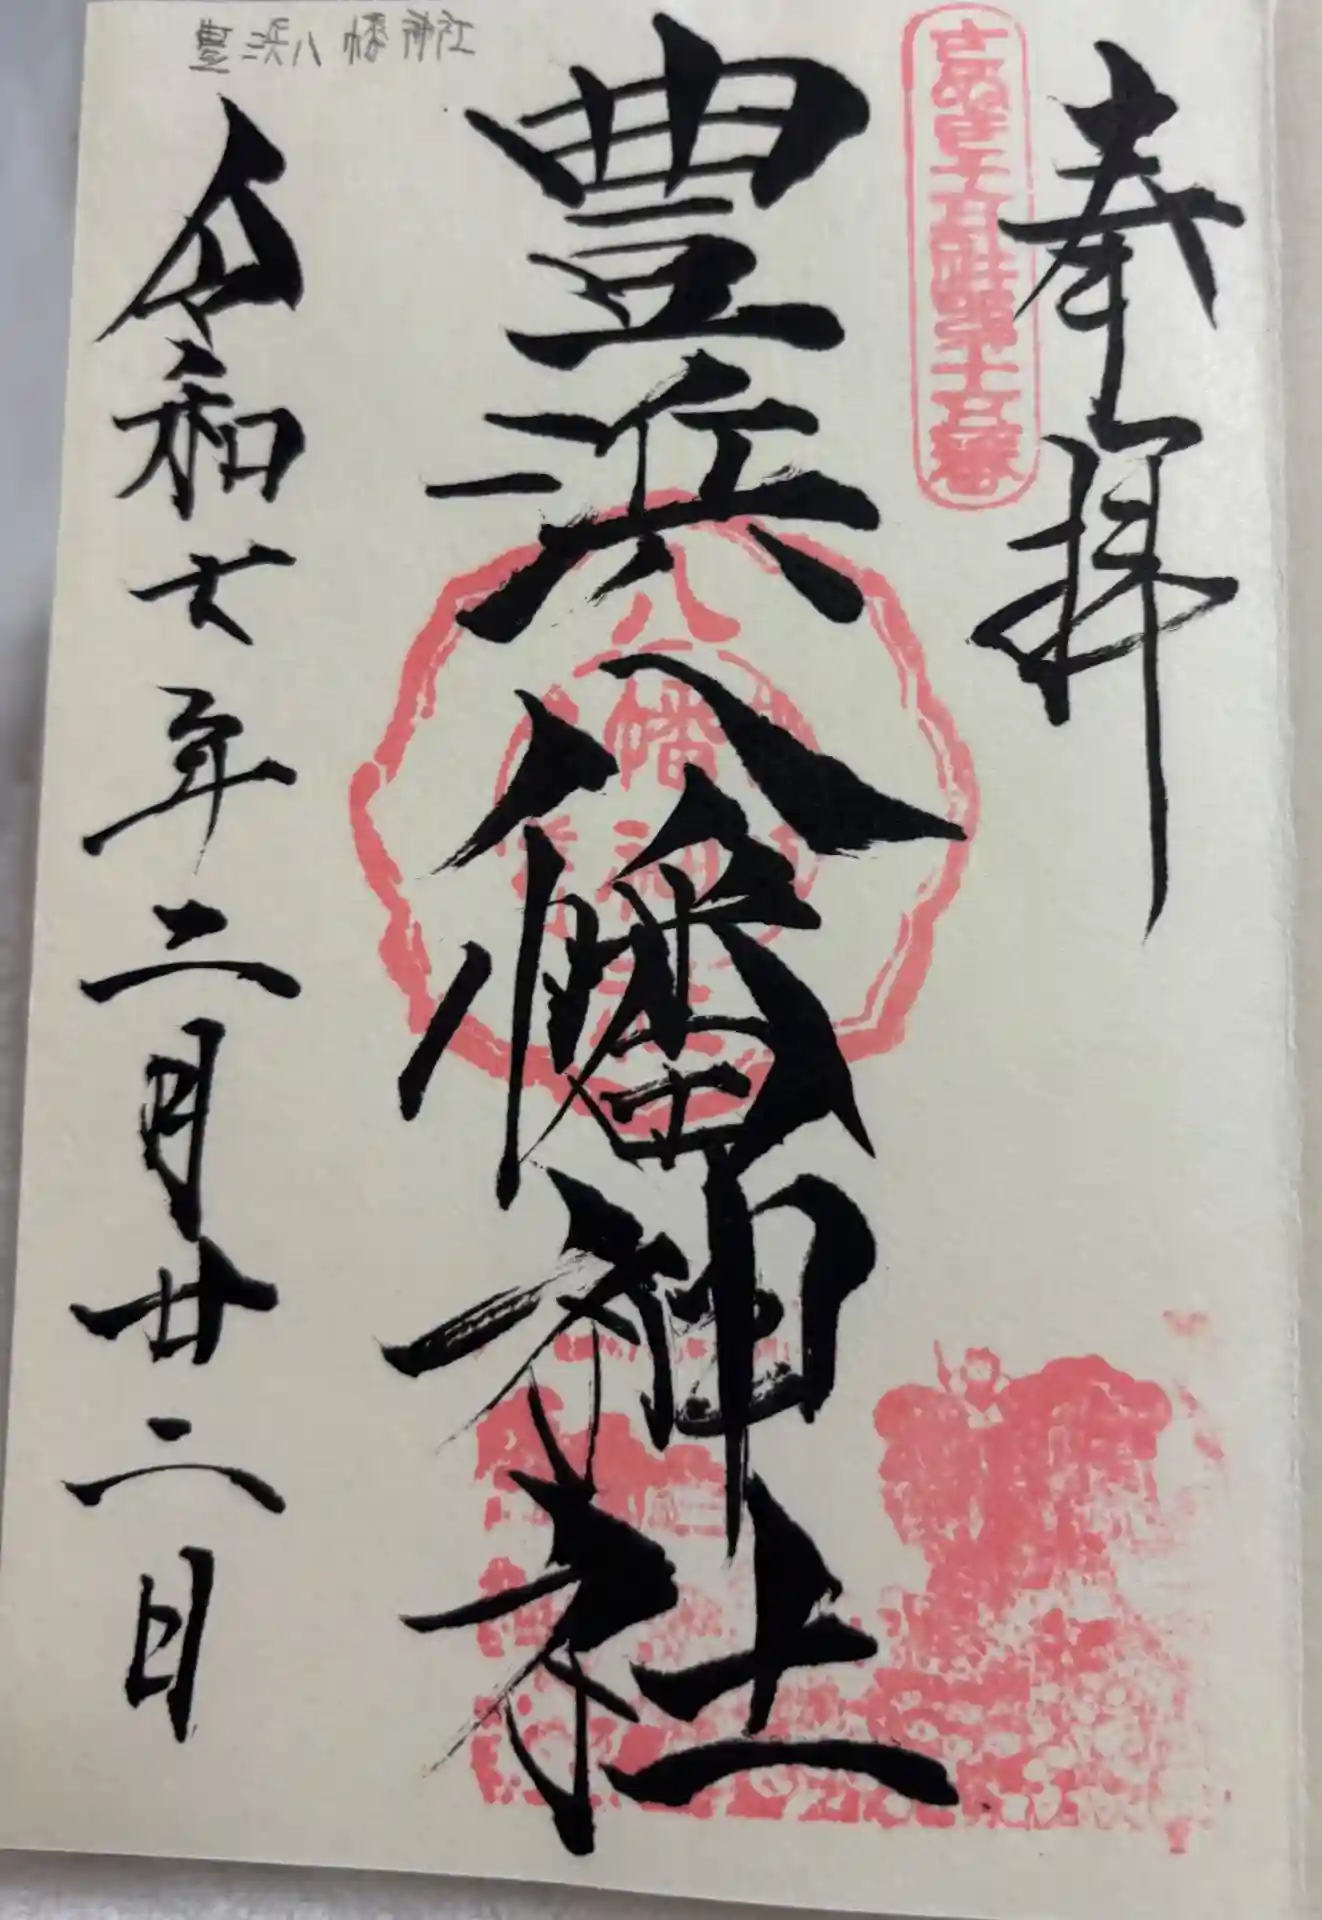 奉拝
豊浜八幡神社
八幡神社
令和七年二月廿二日
豊浜八幡神社